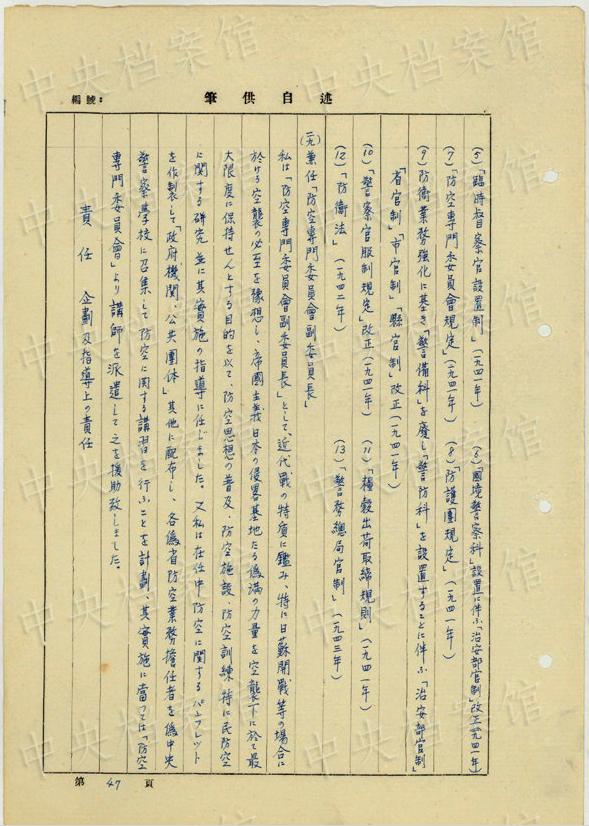 述自供筆
編號：
(5)「臨時督察官設置制」(一九四一年)　(6)「國境警察科」設置に伴ふ「治安部官制」改正(一九四一年)
(7)「防空專門委員會規定」(一九四一年)　(8)「防護團規定」(一九四一年)
(9)防衛業務強化に基き「警備科」を廢し「警防科」を設置することに伴ふ「治安部官制」
「省官制」「市官制」「縣官制」改正(一九四一年)
(10)「警察官服制規定」改正(一九四一年)　(11)「糧穀出荷取締規則」(一九四一年)
(12)「防衛法」(一九四二年)　(13)「警務總局官制」(一九四三年)
兼任「防空專門委員會副委員長」
私は「防空專門委員會副委員長」として、近代戰の特質に鑑み、特に日蘇開戰等の場合に
於ける空襲の必至を豫想し、帝國主義日本の侵畧基地たる偽滿の力量を空襲下に於て最
大限度に保持せんとする目的を以て、防空思想の普及、防空施設、防空訓練特に民防空
に関する研究並に其實施の指導に任じました。又私は在任中防空に関するパンフレット
を作製して「政府機関、公共團体」其他に配布し、各偽省防空業務擔任者を偽中央
警察學校に召集して防空に関する講習を行ふことを計劃、其實施に當つては「防空
專門委員會」より講師を派遣して之を援助致しました。
責任　企劃及指導上の責任
第 47 頁
中央档案馆